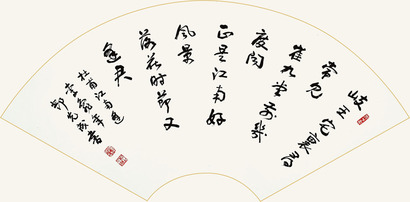 岐王宅里寻
常见
崔九堂前几
度闻
正是江南好
风景
落花时节又
逢君
杜甫江南逢
李龟年
郭克成书